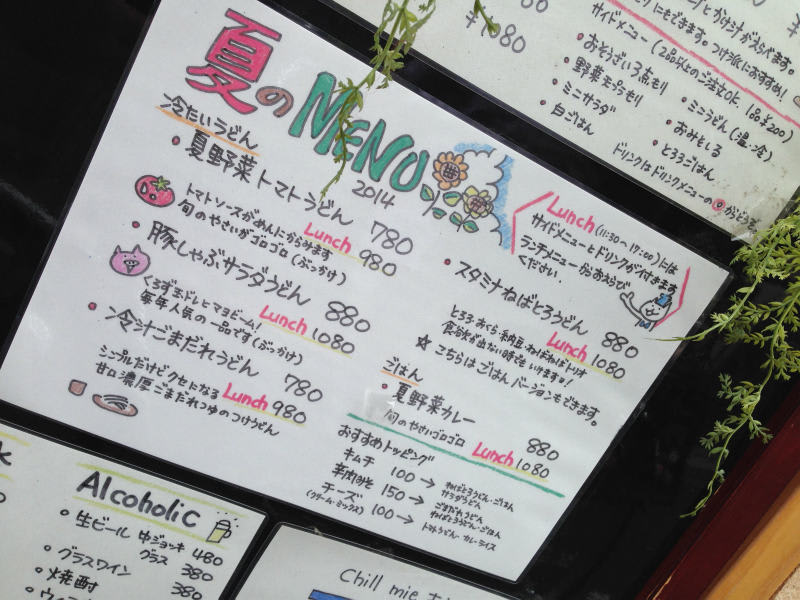 夏のMENU
2014
冷たいうどん
・夏野菜トマトうどん 780
トマトソースがめんにからみます
旬のやさいがゴロゴロ(ぶっかけ)
Lunch 980
・豚しゃぶサラダうどん 880
くろず玉ドレとマヨビーム!
毎年人気の一品です(ぶっかけ)
Lunch 1080
・冷汁ごまだれうどん 780
シンプルだけどクセになる
甘口濃厚ごまだれつゆのつけうどん
Lunch 980
Lunch (11:30~17:00)には
サイドメニューとドリンクが付きます
ランチメニューからおえらび
ください。
・スタミナねばとろうどん 880
とろろ・おくら・納豆・ねばねばトリオ
食欲が出ない時でもいけますよ!
Lunch 1080
☆こちらはごはんバージョンもできます。
ごはん
・夏野菜カレー 880
旬のやさいゴロゴロ
Lunch 1080
おすすめトッピング
キムチ 100→ ねばとろうどん・ごはん
サラダうどん
辛肉みそ 150→ ごまだれうどん
ねばとろうどん・ごはん
チーズ 100→ トマトうどん・カレーライス
(クリーム・ミックス)
にもできます。
サイドメニュー(2品以上のご注文OK. 1品¥200)
・おそうざい3点もり
・野菜
・ミニサラダ
・白ごはん
・ミニうどん(温・冷)
・おみそしる
・とろろごはん
ドリンクはドリンクメニューの
Alcoholic
・生ビール 中ジョッキ 480
グラス 380
・グラスワイン 380
・焼酎 380
Chill